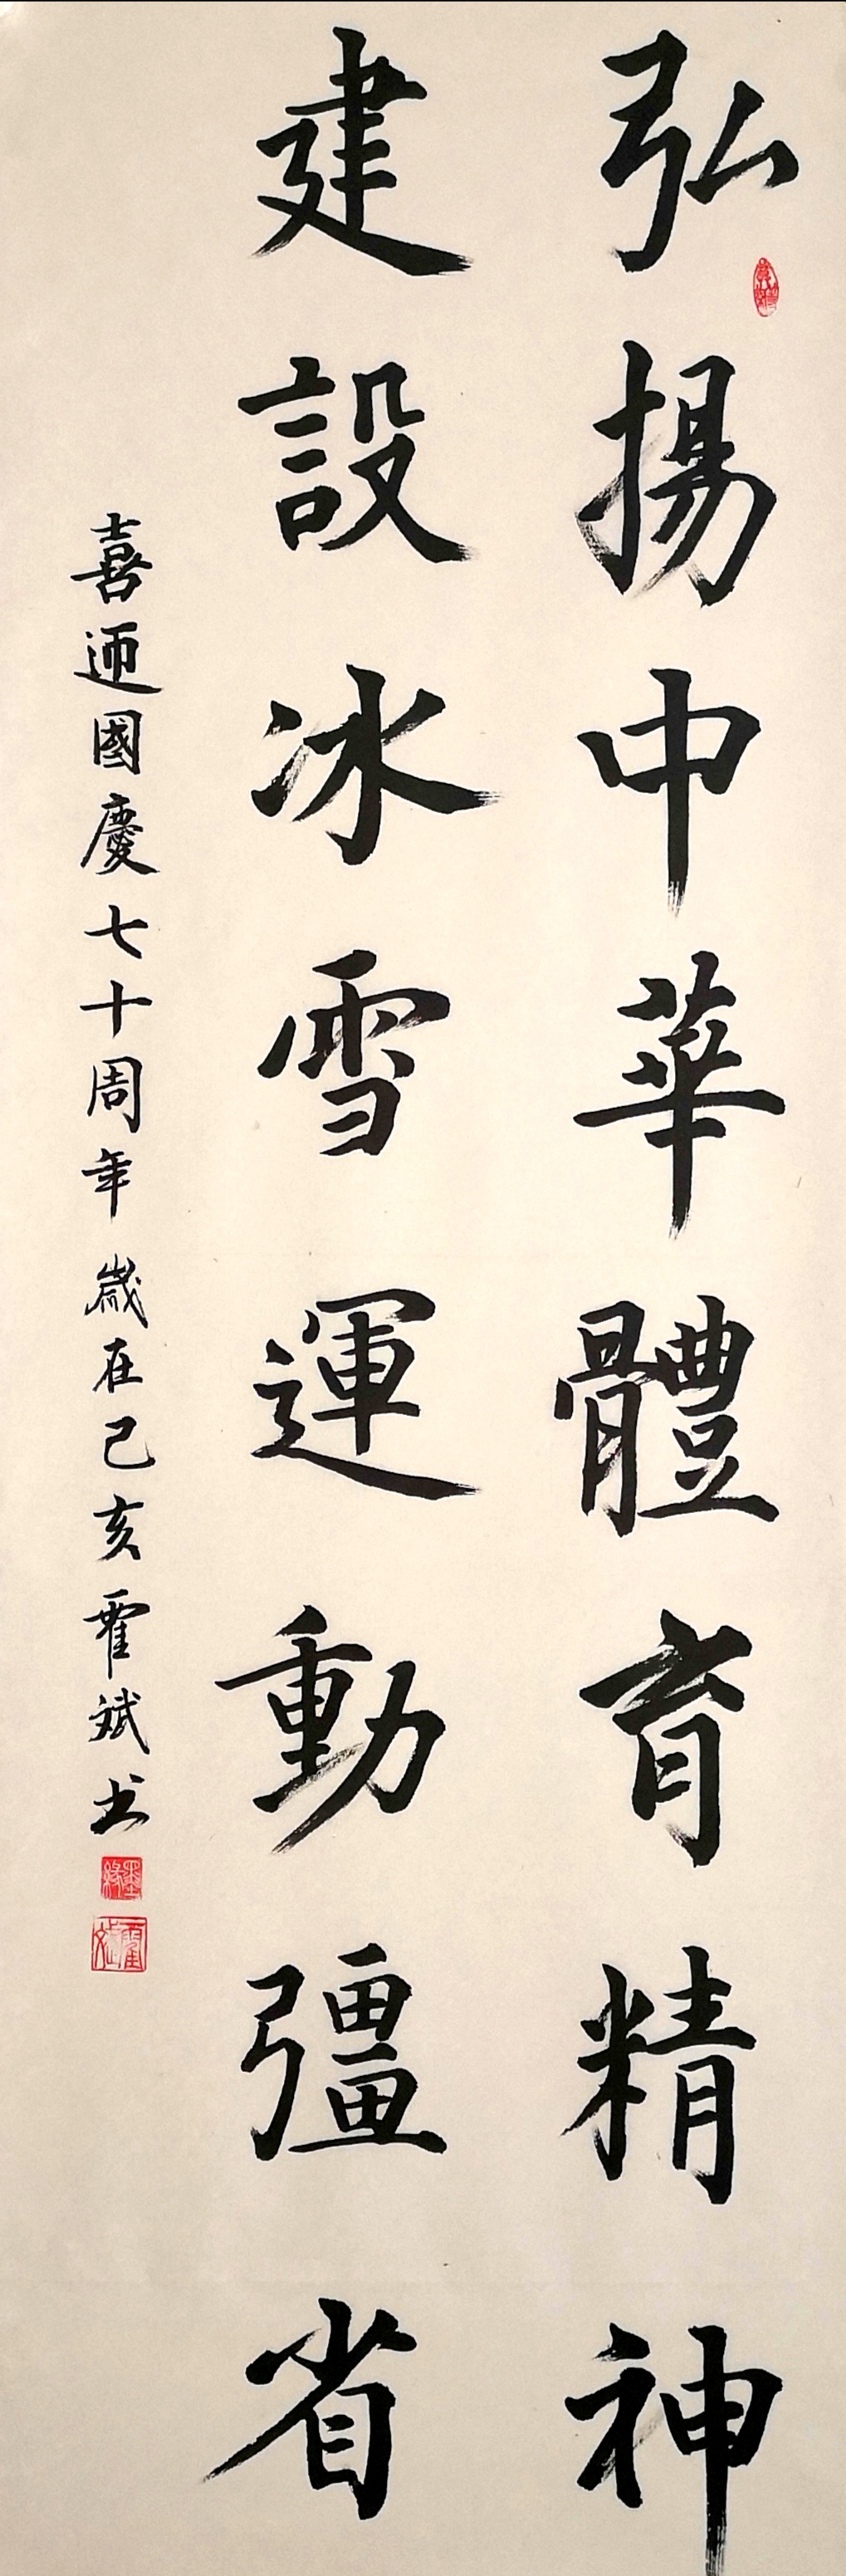 弘揚中華體育精神
建設冰雪運動彊省
喜迊國慶七十周年歲在己亥霍斌书
墨緣